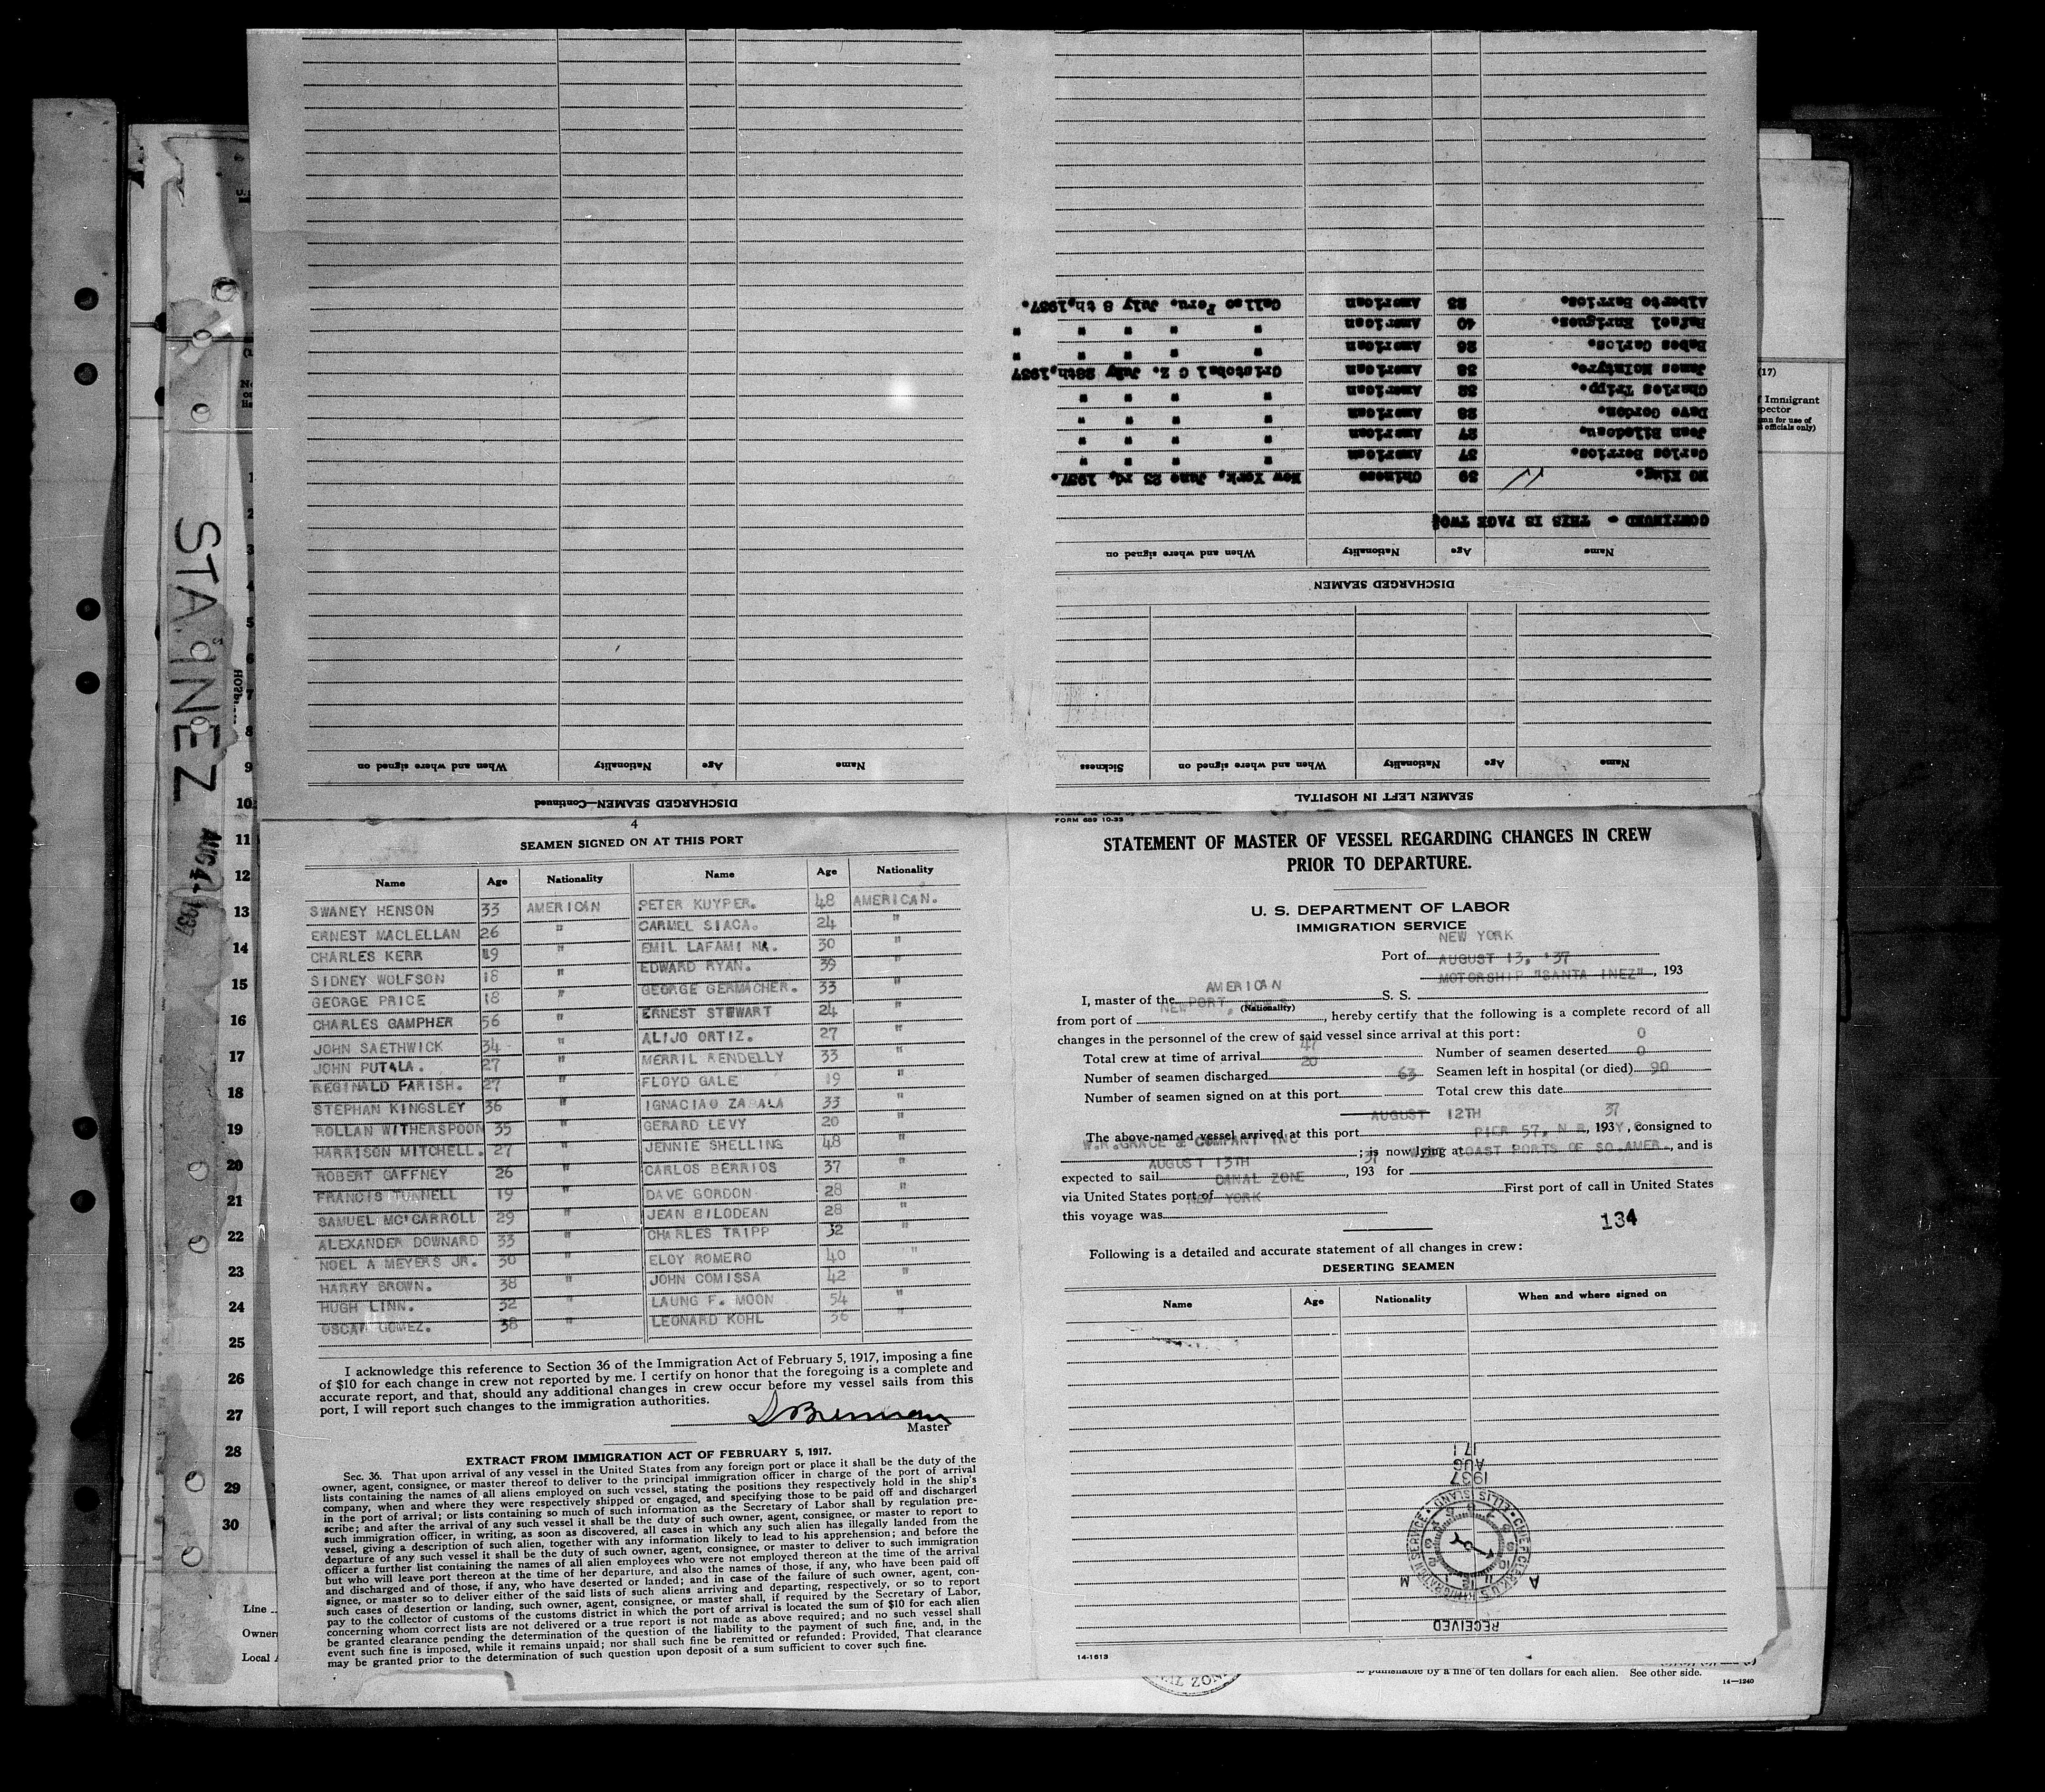 STA. INEZ AUG 1937
DISCHARGED SEAMEN—Continued
Name Age Nationality When and where signed on
SEAMEN LEFT IN HOSPITAL
Name Age Nationality When and where signed on Sickness
DISCHARGED SEAMEN
Name Age Nationality When and where signed on
CONTINUED - THIS IS PAGE TWO
NG King. 39 Chinese New York, June 23 rd, 1937.
Carlos Berrios. 37 American " " " "
Jean Bilodeau. 27 American " " " "
Dave Gordon. 28 American " " " "
Charles Tripp. 32 American " " " "
James McIntyre. 38 American Cristobal C Z. July 28th,1937
Babes Carlos. 26 American " " " " "
Rafael Enrigues. 40 American " " " " "
Alberto Barrios. 23 American Callao Peru. July 8 th,1937.
4
SEAMEN SIGNED ON AT THIS PORT
Name Age Nationality Name Age Nationality
SWANEY HENSON 33 AMERICAN PETER KUYPER. 48 AMERICAN.
ERNEST MACLELLAN 26 " CARMEL SIACA. 24 "
CHARLES KERR 19 " EMIL LAFAMI NA. 30 "
SIDNEY WOLFSON 18 " EDWARD RYAN. 39 "
GEORGE PRICE 18 " GEORGE GERMACHER. 33 "
CHARLES GAMPHER 56 " ERNEST STEWART 24 "
JOHN SAETHWICK 34 " ALIJO ORTIZ. 27 "
JOHN PUTALA. 27 " MERRIL RENDELLY 33 "
REGINALD PARISH. 27 " FLOYD GALE 19 "
STEPHAN KINGSLEY 36 " IGNACIAO ZABALA 33 "
ROLLAN WITHERSPOON 35 " GERARD LEVY 20 "
HARRISON MITCHELL. 27 " JENNIE SHELLING 48 "
ROBERT GAFFNEY 26 " CARLOS BERRIOS 37 "
FRANCIS TUNNELL 19 " DAVE GORDON 28 "
SAMUEL MC'CARROLL 29 " JEAN BILODEAN 28 "
ALEXANDER DOWNARD 33 " CHARLES TRIPP 32 "
NOEL A MEYERS JR. 30 " ELOY ROMERO 40 "
HARRY BROWN. 38 " JOHN COMISSA 42 "
HUGH LINN. 32 " LAUNG F. MOON 54 "
OSCAR GOMEZ. 38 " LEONARD KOHL 36 "
I acknowledge this reference to Section 36 of the Immigration Act of February 5, 1917, imposing a fine
of $10 for each change in crew not reported by me. I certify on honor that the foregoing is a complete and
accurate report, and that, should any additional changes in crew occur before my vessel sails from this
port, I will report such changes to the immigration authorities.
Master
EXTRACT FROM IMMIGRATION ACT OF FEBRUARY 5, 1917.
Sec. 36. That upon arrival of any vessel in the United States from any foreign port or place it shall be the duty of the
owner, agent, consignee, or master thereof to deliver to the principal immigration officer in charge of the port of arrival
lists containing the names of all aliens employed on such vessel, stating the positions they respectively hold in the ship's
company, when and where they were respectively shipped or engaged, and specifying those to be paid off and discharged
in the port of arrival; or lists containing so much of such information as the Secretary of Labor shall by regulation pre-
scribe; and after the arrival of any such vessel it shall be the duty of such owner, agent, consignee, or master to report to
such immigration officer, in writing, as soon as discovered, all cases in which any such alien has illegally landed from the
vessel, giving a description of such alien, together with any information likely to lead to his apprehension; and before the
departure of any such vessel it shall be the duty of such owner, agent, consignee, or master to deliver to such immigration
officer a further list containing the names of all alien employees who were not employed thereon at the time of the arrival
but who will leave port thereon at the time of her departure, and also the names of those, if any, who have been paid off
and discharged and of those, if any, who have deserted or landed; and in case of the failure of such owner, agent, con-
signee, or master so to deliver either of the said lists of such aliens arriving and departing, respectively, or so to report
such cases of desertion or landing, such owner, agent, consignee, or master shall, if required by the Secretary of Labor,
pay to the collector of customs of the customs district in which the port of arrival is located the sum of $10 for each alien
concerning whom correct lists are not delivered or a true report is not made as above required; and no such vessel shall
be granted clearance pending the determination of the question of the liability to the payment of such fine, and, in the
event such fine is imposed, while it remains unpaid; nor shall such fine be remitted or refunded: Provided, That clearance
may be granted prior to the determination of such question upon deposit of a sum sufficient to cover such fine.
FORM 689 10-33
STATEMENT OF MASTER OF VESSEL REGARDING CHANGES IN CREW
PRIOR TO DEPARTURE.
U. S. DEPARTMENT OF LABOR
IMMIGRATION SERVICE
NEW YORK
Port of AUGUST 13, '37
MOTORSHIP "SANTA INEZ", 193
AMERICAN
I, master of the S. S.
(Nationality)
from port of NEWPORT, NEWS, hereby certify that the following is a complete record of all
changes in the personnel of the crew of said vessel since arrival at this port:
Total crew at time of arrival 47 Number of seamen deserted 0
Number of seamen discharged 20 Seamen left in hospital (or died) 0
Number of seamen signed on at this port 63 Total crew this date 90
AUGUST 12TH 37
The above-named vessel arrived at this port PIER 57, N R, 193 , consigned to
W.R.GRACE & COMPANY INC ; is now lying at COAST PORTS OF SO.AMER., and is
expected to sail AUGUST 13TH, 193 37 for
via United States port of CANAL ZONE First port of call in United States
this voyage was NEW YORK
134
Following is a detailed and accurate statement of all changes in crew:
DESERTING SEAMEN
Name Age Nationality When and where signed on
RECEIVED
A M
CHIEF CLERK U.S. IMMIGRATION SERVICE • ELLIS ISLAND •
1937
AUG
17
14-1613
1
2
3
4
5
6
7
8
9
10
11
12
13
14
15
16
17
18
19
20
21
22
23
24
25
26
27
28
29
30
Line
Owner
Local
(17)
Immigrant
officials only)
is punishable by a fine of ten dollars for each alien. See other side.
14—1240